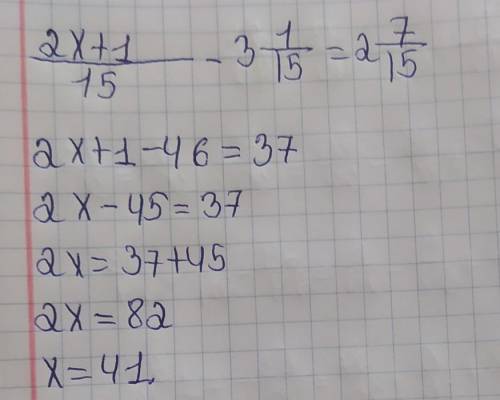 (2x+1)/15 - 3 1/15 = 2 7/15
2x+1-46=37
2x-45=37
2x=37+45
2x=82
x=41.